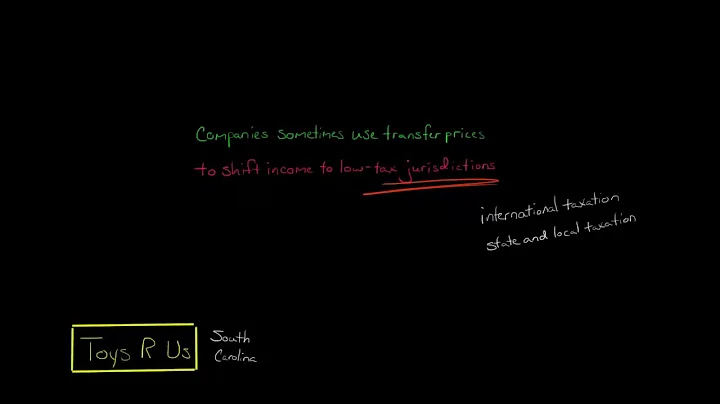 Companies sometimes use transfer prices
to shift income to low-tax jurisdictions
international taxation
state and local taxation
Toys R Us
South
Carolina